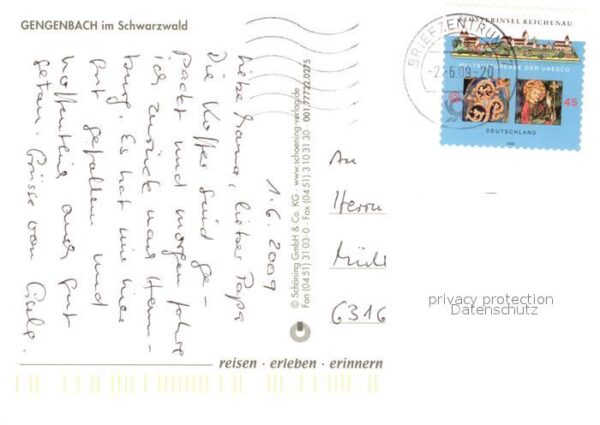 GENGENBACH im Schwarzwald
1.6.2009
Liebe Mama, lieber Papa
Die Koffer sind ge-
packt und morgen fahre
ich zurück nach Ham-
burg. Es hat mir hier
gut gefallen und
hoffentlich auch gut
getan. Grüsse von Gisela.
© Schöning GmbH & Co. KG · www.schoening-verlag.de
Fon (04 51) 31 03-0 · Fax (04 51) 3 10 31 30 001.77722.0275
reisen · erleben · erinnern
BRIEFZENTRUM
-2.-6.09-20
KLOSTERINSEL REICHENAU
WELTKULTURERBE DER UNESCO
45
DEUTSCHLAND
2008
An
Herrn
6316
privacy protection
Datenschutz